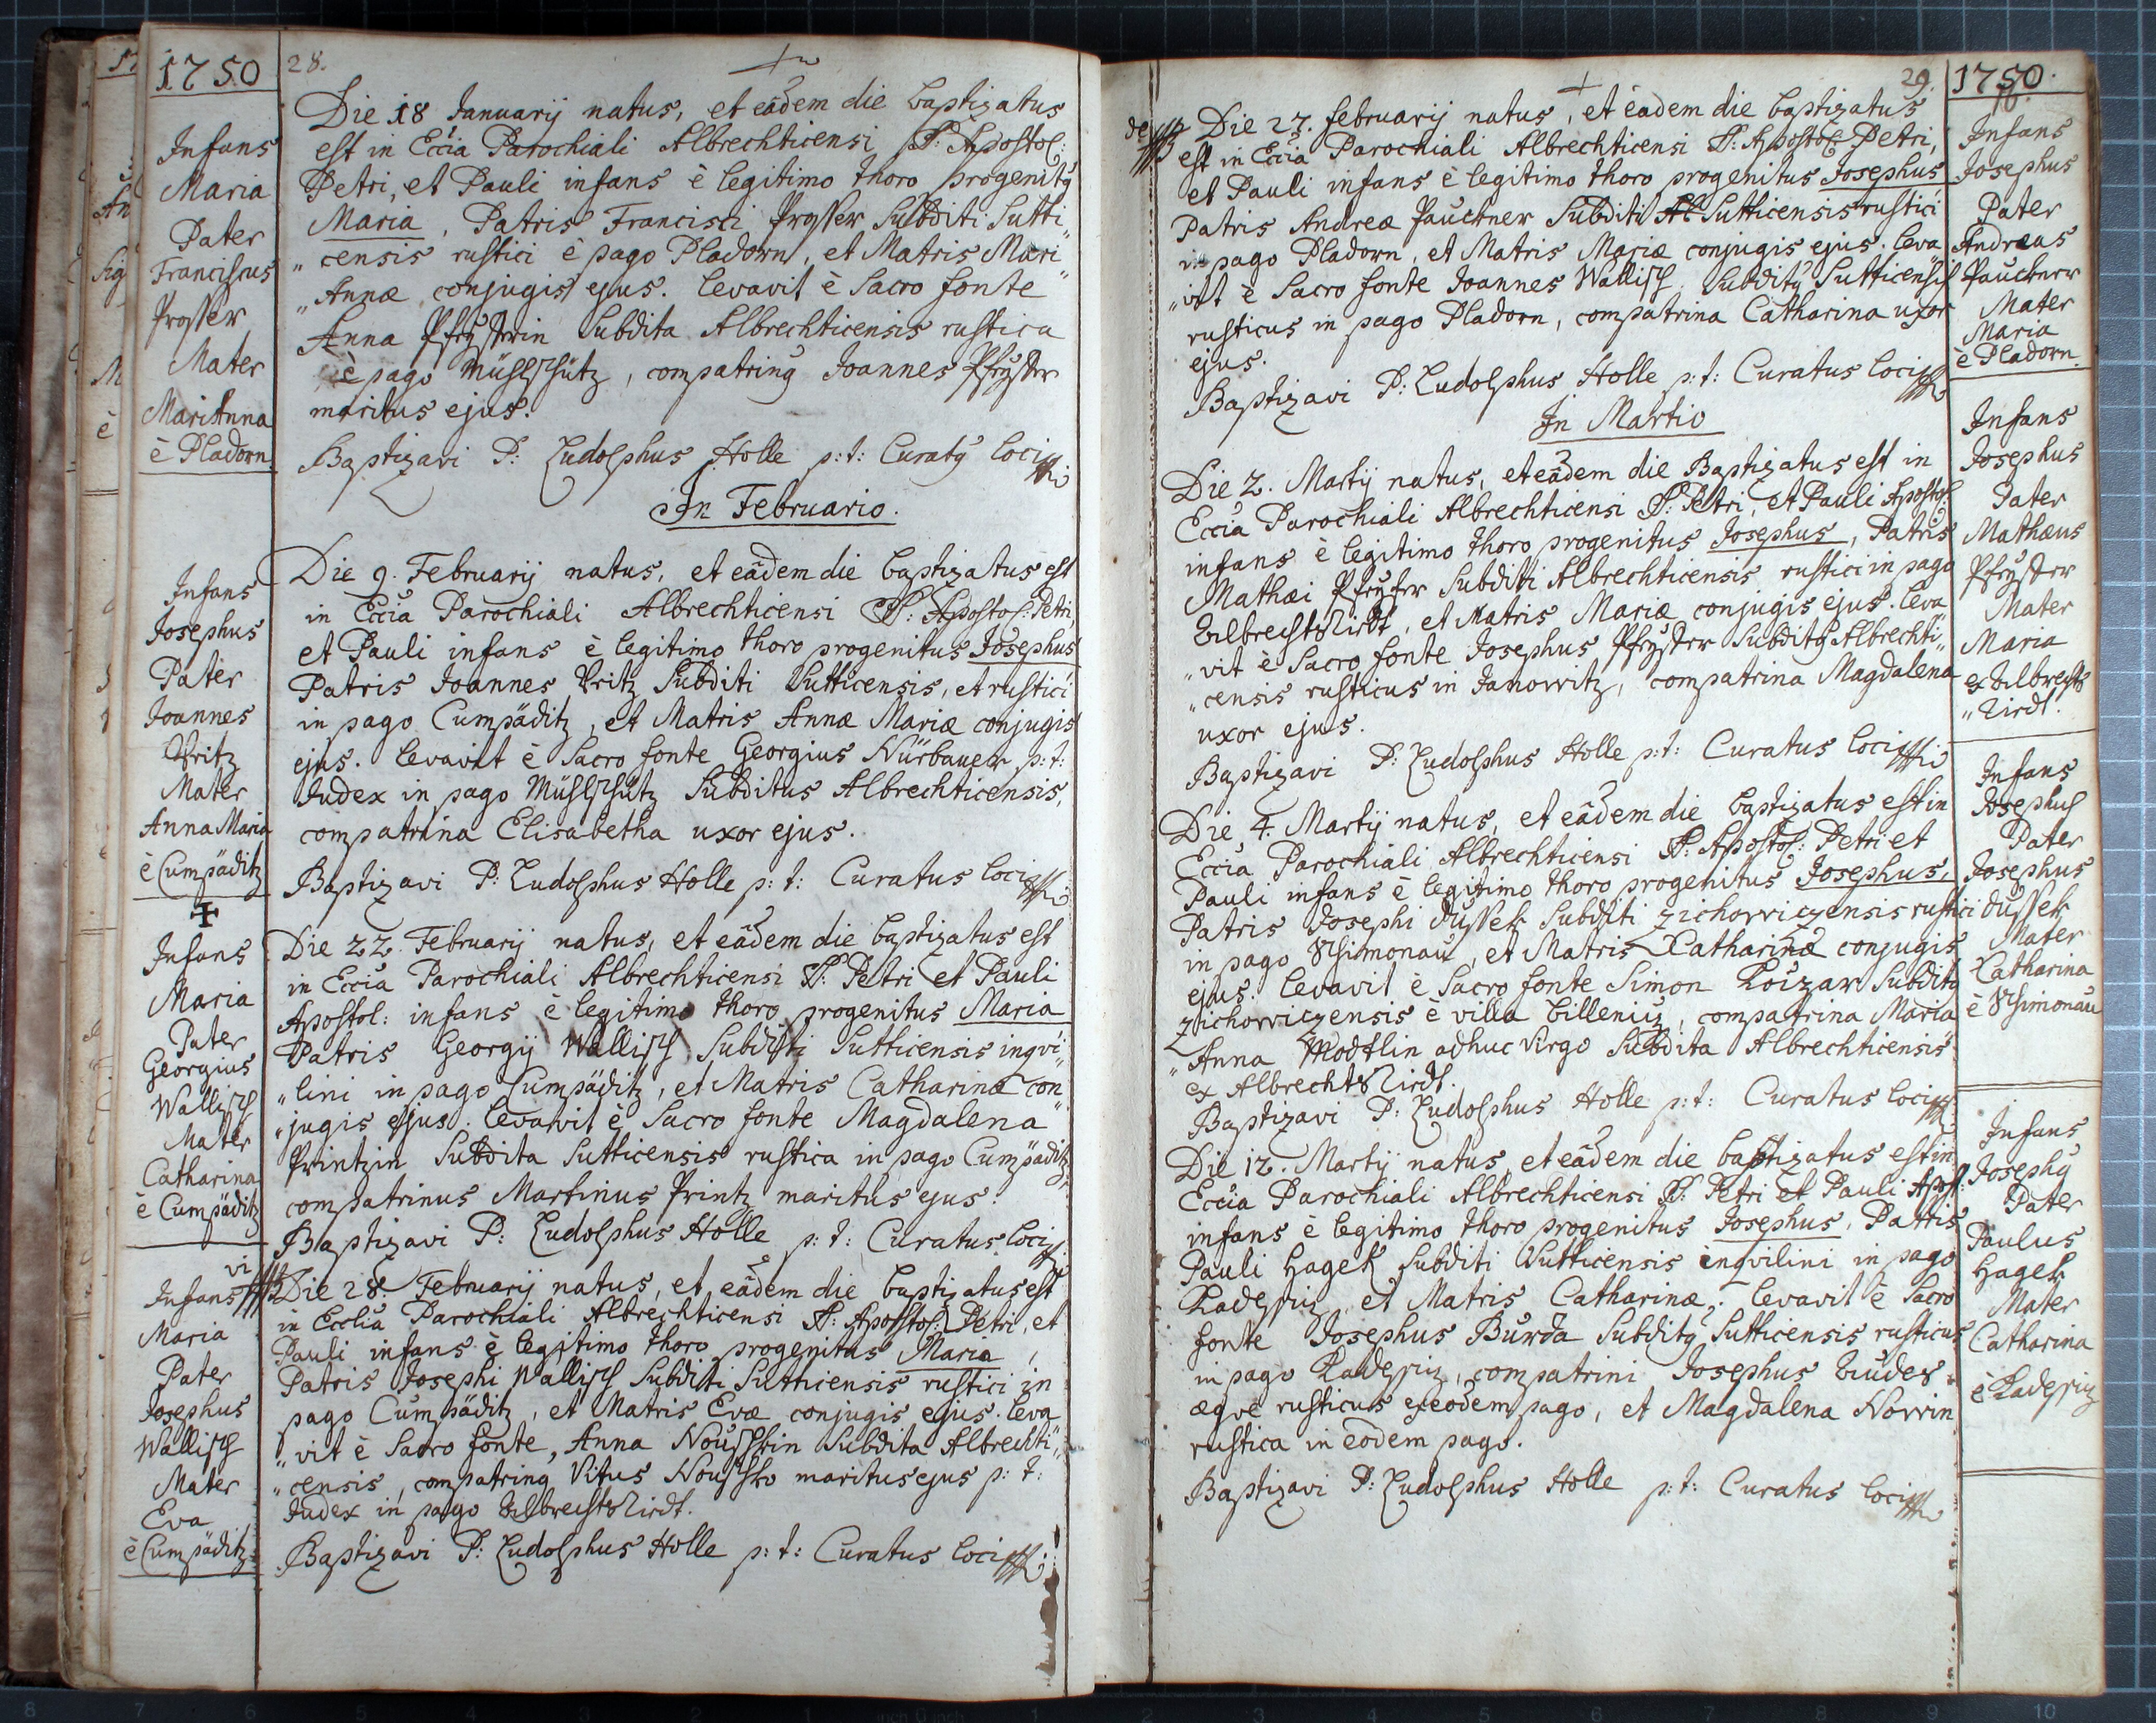 1750
28.
Infans
Maria
Pater
Franciscus
Prosser
Mater
MariAnna
è Pladorn
Die 18 Januarij natus, et eâdem die baptizatus
est in Eccia Parochiali Albrechticensi SS: Apostol:
Petri, et Pauli infans è legitimo thoro progenitg
Maria, Patris Francisci Prosser Subditi Sutti„
„censis rustici è pago Pladorn, et Matris Mari„
„Annæ conjugis ejus. levavit è Sacro fonte
Anna Pfeysterin Subdita Albrechticensis rustica
è pago Mühlschütz, compatring Joannes Pfeyster
maritus ejus.
Baptizavi P: Ludolphus Holle p: t: Curatg loci
In Februario.
Infans
Josephus
Pater
Joannes
Britz
Mater
Anna Maria
è Cumpäditz
Die 9. Februarij natus, et eâdem die baptizatus est
in Eccia Parochiali Albrechticensi SS: Apostol: Petri,
et Pauli infans è legitimo thoro progenitus Josephus
Patris Joannes Britz Subditi Sutticensis, et rustici
in pago Cumpäditz, et Matris Annæ Mariæ conjugis
ejus. levavit è Sacro fonte Georgius Nürbauer p: t:
Judex in pago Mühlschütz Subditus Albrechticensis,
compatrina Elisabetha uxor ejus.
Baptizavi P: Ludolphus Holle p: t: Curatus loci
Infans
Maria
Pater
Georgius
Wallisch
Mater
Catharina
è Cumpäditz
Die 22. Februarij natus, et eâdem die baptizatus est
in Eccia Parochiali Albrechticensi SS: Petri et Pauli
Apostol: infans è legitimo thoro progenitus Maria
Patris Georgij Wallisch Subditi Sutticensis inqvi„
„lini in pago Cumpäditz, et Matris Catharinæ con„
„jugis ejus. levavit è Sacro fonte Magdalena
Printzin Subdita Sutticensis rustica in pago Cumpäditz,
compatrinus Martinus Printz maritus ejus.
Baptizavi P: Ludolphus Holle p: t: Curatus loci
vi
Infans
Maria
Pater
Josephus
Wallisch
Mater
Eva
è Cumpäditz
Die 28. Februarij natus, et eâdem die baptizatus est
in Ecclia Parochiali Albrechticensi SS: Apostol: Petri, et
Pauli infans è legitimo thoro progenitus Maria,
Patris Josephi Wallisch Subditi Sutticensis rustici in
pago Cumpäditz, et Matris Evæ conjugis ejus. leva
„vit è Sacro fonte, Anna Nouschkin Subdita Albrechti„
„censis, compatring Vitus Nouschko maritus ejus p: t:
Judex in pago Albrechtsriedt.
Baptizavi P: Ludolphus Holle p: t: Curatus loci
29.
1750.
de
Die 27. februarij natus, et eadem die baptizatus
est in Eccia Parochiali Albrechticensi SS: Apostol: Petri,
et Pauli infans è legitimo thoro progenitus Josephus
Patris Andreæ Pauckner Subditi Sutticensis rustici
in pago Pladorn, et Matris Mariæ conjugis ejus. leva„
„vit è Sacro fonte Joannes Wallisch Subditg Sutticensis
rusticus in pago Pladorn, compatrina Catharina uxor
ejus.
Baptizavi P: Ludolphus Holle p: t: Curatus loci
Infans
Josephus
Pater
Andreas
Pauckner
Mater
Maria
è Pladorn.
In Martio
Die 2. Martij natus, et eâdem die Baptizatus est in
Eccia Parochiali Albrechticensi SS: Petri, et Pauli Apostol:
infans è legitimo thoro progenitus Josephus, Patris
Mathæi Pfeyster Subditi Albrechticensis rustici in pago
Albrechtsriedt, et Matris Mariæ conjugis ejus. leva„
„vit è Sacro fonte Josephus Pfeyster Subditg Albrechti„
„censis rusticus in Janowitz, compatrina Magdalena
uxor ejus.
Baptizavi P: Ludolphus Holle p: t: Curatus loci
Infans
Josephus
Pater
Mathæus
Pfeyster
Mater
Maria
ex Albrechts
„riedt.
Die 4. Martij natus, et eâdem die baptizatus est in
Eccia Parochiali Albrechticensi SS: Apostol: Petri et
Pauli infans è legitimo thoro progenitus Josephus,
Patris Josephi Dussek Subditi Zichowiczensis rustici
in pago Usimonau, et Matris Catharinæ conjugis
ejus. levavit è Sacro fonte Simon Koizar Subditg
Zichowiczensis è villa Billeniz, compatrina Maria
„Anna Modtlin adhuc Virgo Subdita Albrechticensis
ex Albrechtsriedt.
Baptizavi P: Ludolphus Holle p: t: Curatus loci
Infans
Josephus
Pater
Josephus
Dussek
Mater
Catharina
è Usimonau
Die 12. Martij natus, et eâdem die baptizatus est in
Eccia Parochiali Albrechticensi SS: Petri et Pauli Apost:
infans è legitimo thoro progenitus Josephus, Patris
Pauli Hagek Subditi Sutticensis inqvilini in pago
Kadeschiz, et Matris Catharinæ. levavit è Sacro
fonte Josephus Burda Subditg Sutticensis rusticus
in pago Kadeschiz, compatrini Josephus
æqve rusticus ex eodem pago, et Magdalena Norrin
rustica in eodem pago.
Baptizavi P: Ludolphus Holle p: t: Curatus loci
Infans
Josephg
Pater
Paulus
Hagek
Mater
Catharina
è Kadeschiz